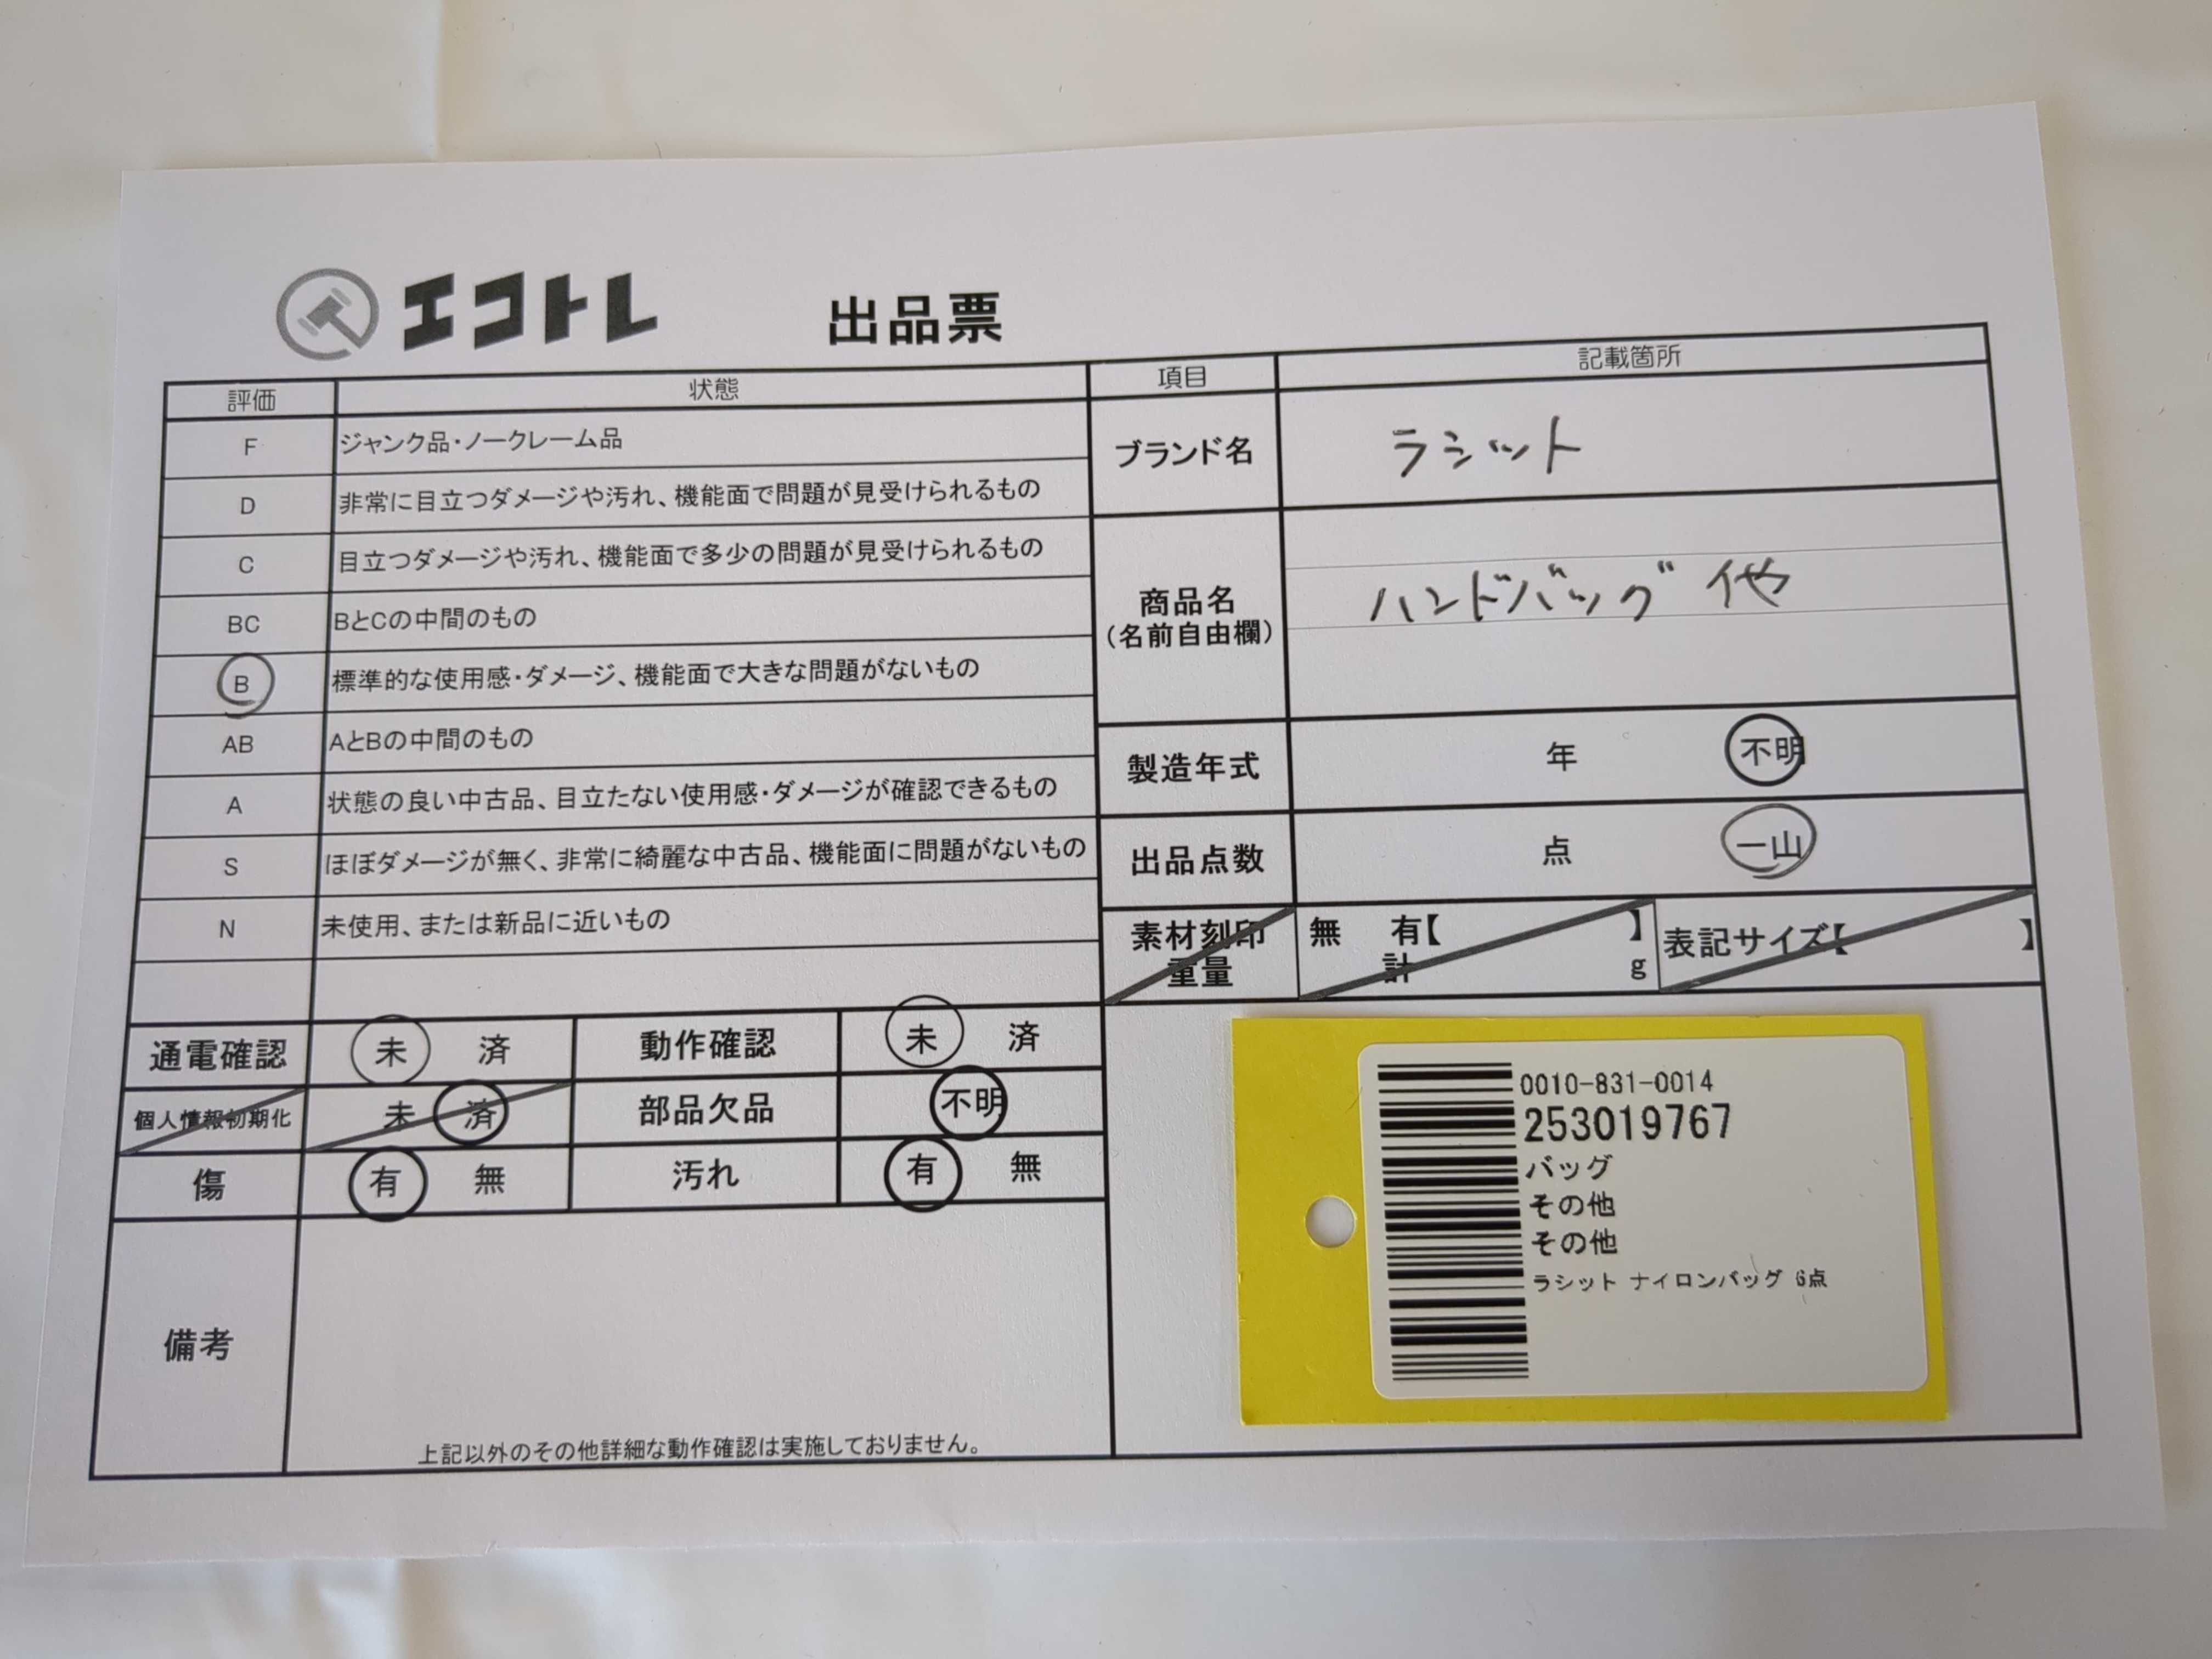 エコトレ 出品票
評価 状態
F ジャンク品・ノークレーム品
D 非常に目立つダメージや汚れ、機能面で問題が見受けられるもの
C 目立つダメージや汚れ、機能面で多少の問題が見受けられるもの
BC BとCの中間のもの
B 標準的な使用感・ダメージ、機能面で大きな問題がないもの
AB AとBの中間のもの
A 状態の良い中古品、目立たない使用感・ダメージが確認できるもの
S ほぼダメージが無く、非常に綺麗な中古品、機能面に問題がないもの
N 未使用、または新品に近いもの
項目 記載箇所
ブランド名 ラシット
商品名 ハンドバッグ 他
(名前自由欄)
製造年式 年 不明
出品点数 点 一山
素材刻印 無 有【 】 表記サイズ【 】
重量 計 g
通電確認 未 済 動作確認 未 済
個人情報初期化 未 済 部品欠品 不明
傷 有 無 汚れ 有 無
備考
上記以外のその他詳細な動作確認は実施しておりません。
0010-831-0014
253019767
バッグ
その他
その他
ラシット ナイロンバッグ 6点